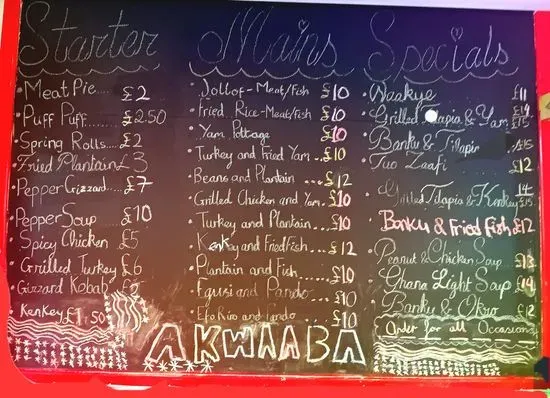 Starter
Meat Pie..... £2
Puff Puff..... £2.50
Spring Rolls... £2
Fried Plantain £3
Pepper Gizzard.. £7
Pepper Soup £10
Spicy Chicken £5
Grilled Turkey £6
Gizzard Kobab
Kenkey £1.50
Mains
Jollof-Meat/Fish £10
Fried Rice-Meat/Fish £10
Yam Pottage £10
Turkey and Fried Yam.. £10
Beans and Plantain .. £12
Grilled Chicken and Yam. £10
Turkey and Plantain.. £10
Kenkey and Fried Fish.. £12
Plantain and Fish.... £10
and £10
Efo Riro and £10
Specials
Waakye £11
Grilled Tilapia & Yam £15
Banku & Tilapia £15
Tuo Zaafi £12
Grilled Tilapia & Kenkey £15
Banku & Fried Fish £12
Peanut & Chicken Soup £13
Ghana Light Soup £14
Banku & Okro £12
Order for all Occasions
AKWAABA